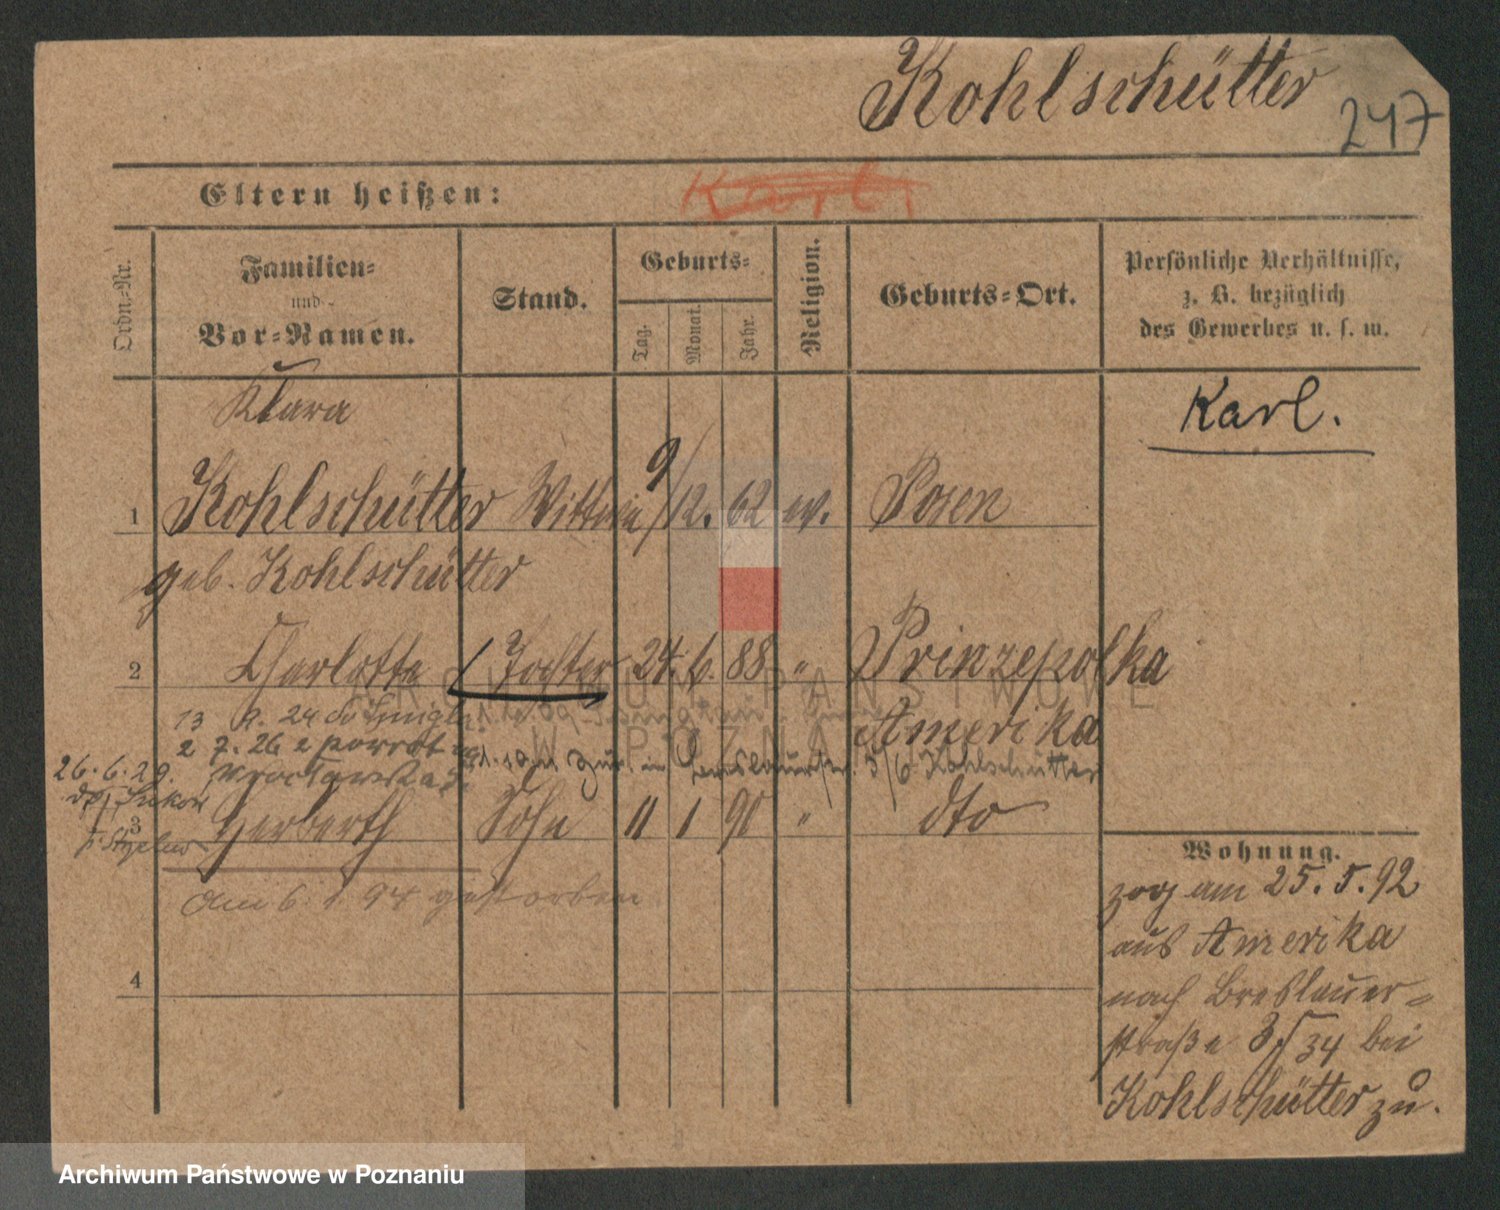 Kohlschütter
247
Eltern heißen:
Karl
Ordn.-Nr.
Familien-
und
Vor-Namen.
Stand.
Geburts-
Tag.
Monat.
Jahr.
Religion.
Geburts-Ort.
Persönliche Verhältnisse,
z. B. bezüglich
des Gewerbes u. s. w.
Karl.
Klara
1 Kohlschütter Wittwe 9/12. 62 ev. Posen
geb. Kohlschütter
2 Charlotte Tochter 24. 6. 88 " Prinzepolka
Amerika
13 9. 24
2 7. 26 z powrotem
26. 6. 29.
zur. in Kohlschütter
3 Herberth Sohn 11 1 90 " dto
am 6. 1. 94 gestorben
4
Wohnung.
zog am 25. 5. 92
aus Amerika
nach Breslauer-
straße bei
Kohlschütter zu.
ARCHIWUM PAŃSTWOWE
W POZNANIU
Archiwum Państwowe w Poznaniu